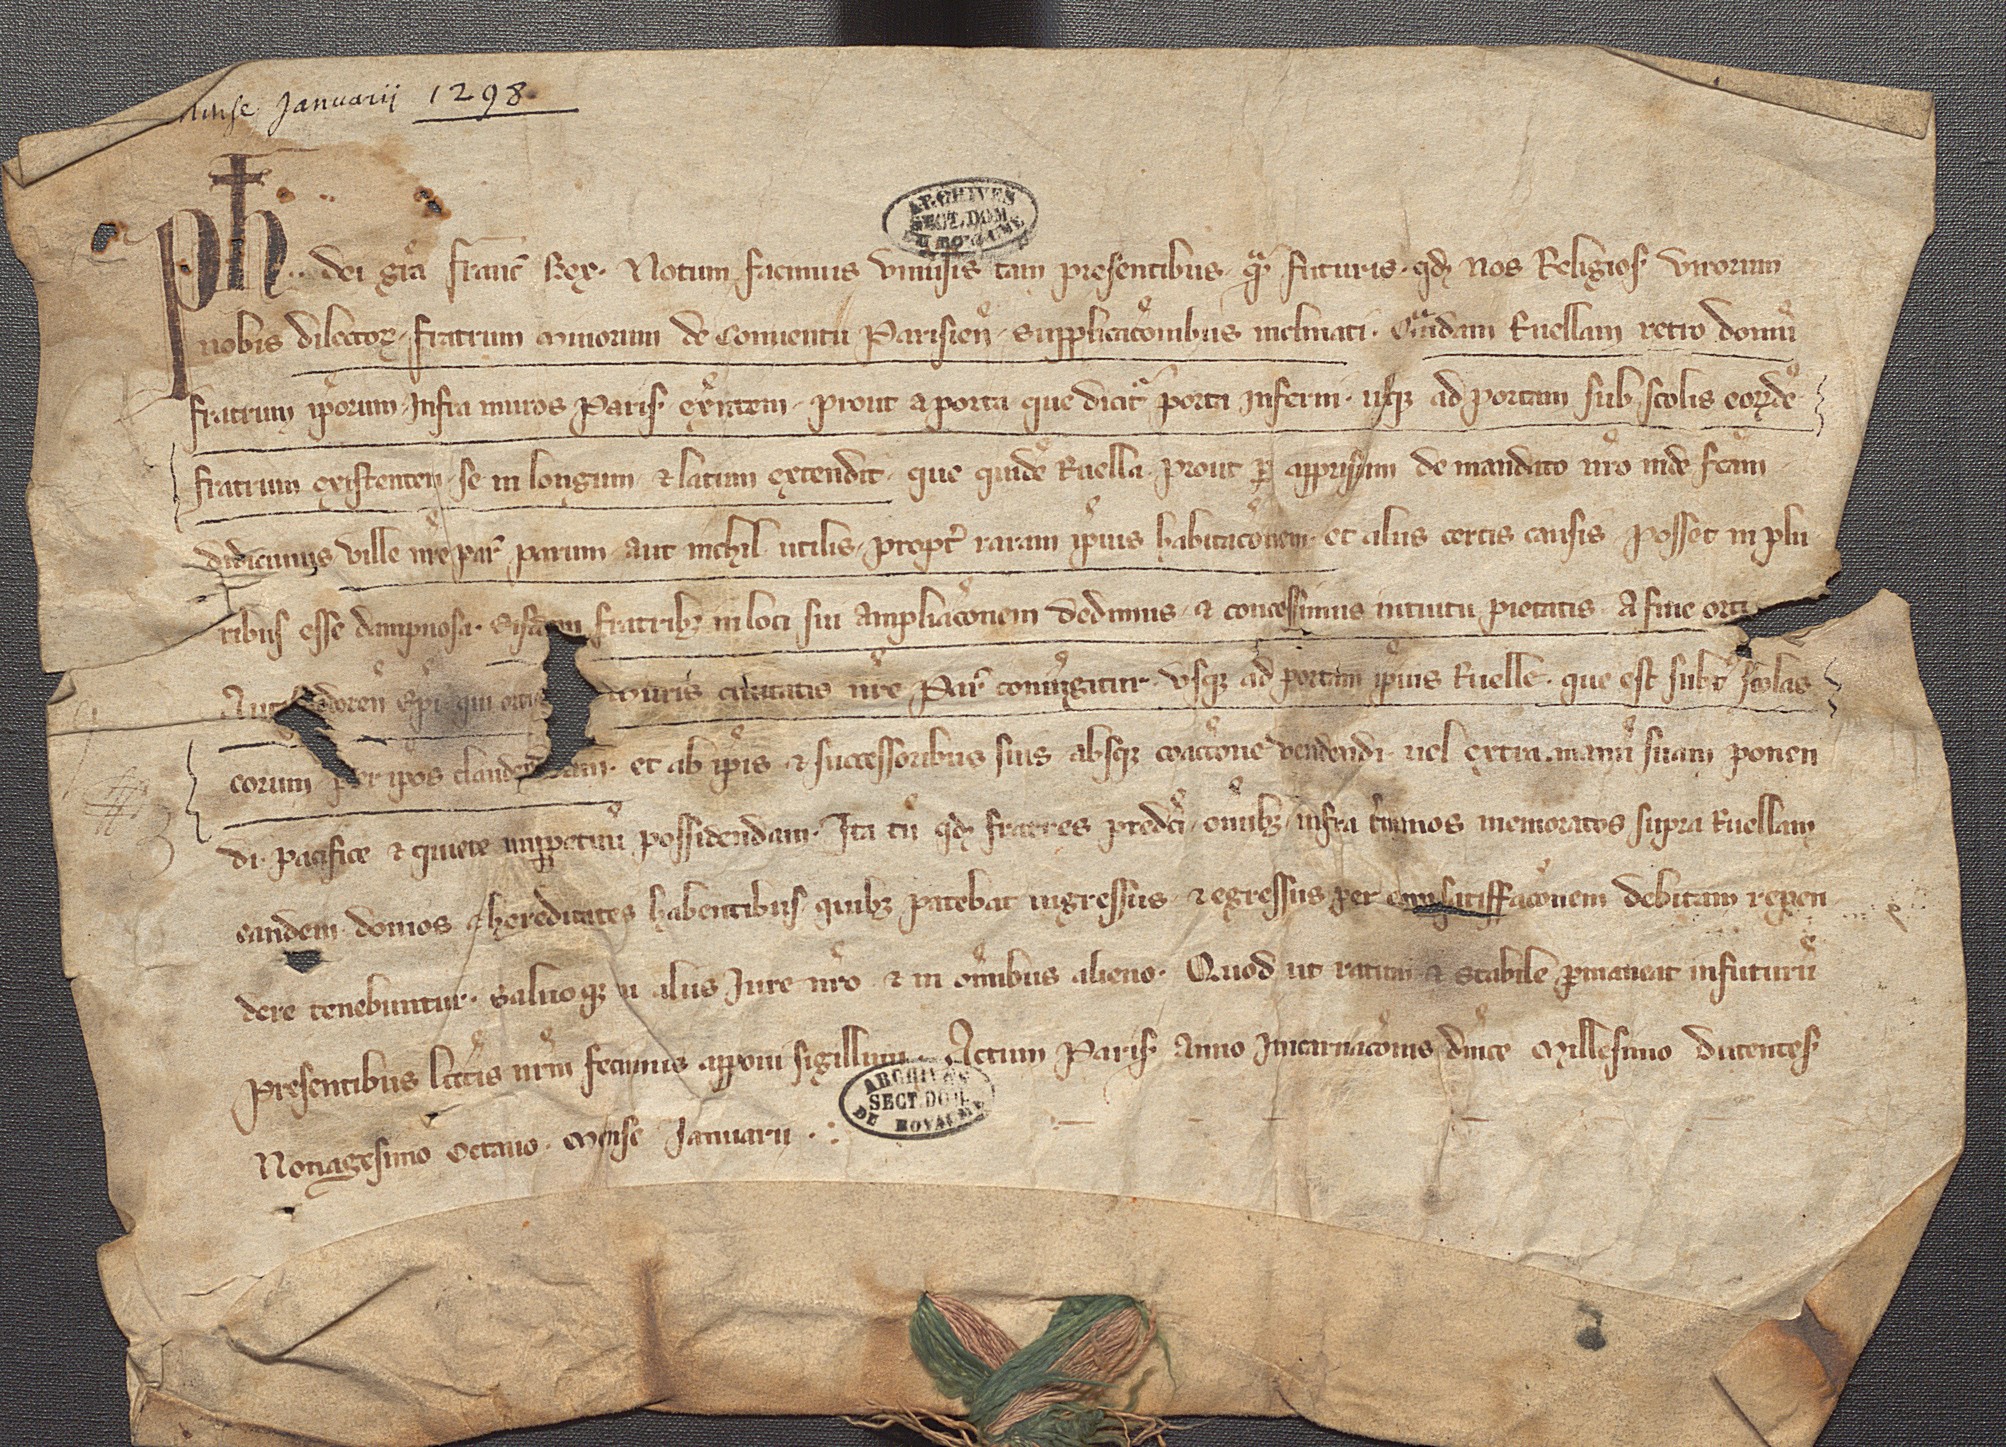 mense Januarij 1298
ARCHIVES
SECT. DOM.
DU ROYAUME
Ph .. dei gr̃a franc̃ Rex. Notum facimus vniũsis tam presentibus qͣ̃ futuris. qđ nos Religios̃ virorum
nobis dilectoꝝ fratrum minorum de Conuentu Parisien̄ supplicac̃onibus inclinati. Quͣdam Ruellam retro domũ
fratrum ip̃orum infra muros Paris̃ ex̃ntem. prout a porta que dicit̃ porta inferni. usqꝫ ad portam sub scolis eoꝝdẽ
fratrum existentem se in longum ⁊ latum extendit. que quidẽ Ruella. prout ꝑ apprisiam de mandato nr̃o inde fc̃am
didicimus ville nr̃e par̃ parum aut nichil utilis. propt̃ raram ip̃ius habitac̃onem. et aliis certis causis posset in plu
ribus esse dampnosa. Eisdem fratribꝫ in loci sui ampliac̃onem dedimus ⁊ concessimus intuitu pietatis. A fine orti
ep̃i qui muris ciuitatis nr̃e Par̃ coniũgitur. vsqꝫ ad portam ip̃ius Ruelle. que est subt̃ scolas
eorum per ip̃os et ab ip̃is ⁊ successoribus suis absqꝫ coacc̃one vendendi. uel extra manũ suam ponen
di. pacifice ⁊ quiete inꝑpetuũ possidendam. Ita tñ qđ fratres predc̃i om̃ibꝫ infra t̃minos memoratos supra Ruellam
eandem domos ⁊ hereditates habentibus quibꝫ patebat ingressus ⁊ egressus per eam satiffac̃onem debitam repen
dere tenebuntur. Saluo qꝫ in aliis Jure nr̃o ⁊ in om̃ibus alieno. Quod ut ratum ⁊ stabile ꝑmaneat in futurũ
presentibus litt̃is nr̃m fecimus apponi sigillum. Actum Paris̃ anno Jncarnac̃onis dñice Millesimo ducentes̃
Nonagesimo Octauo. mense Januarii.
ARCHIVES
SECT. DOM.
DU ROYAUME